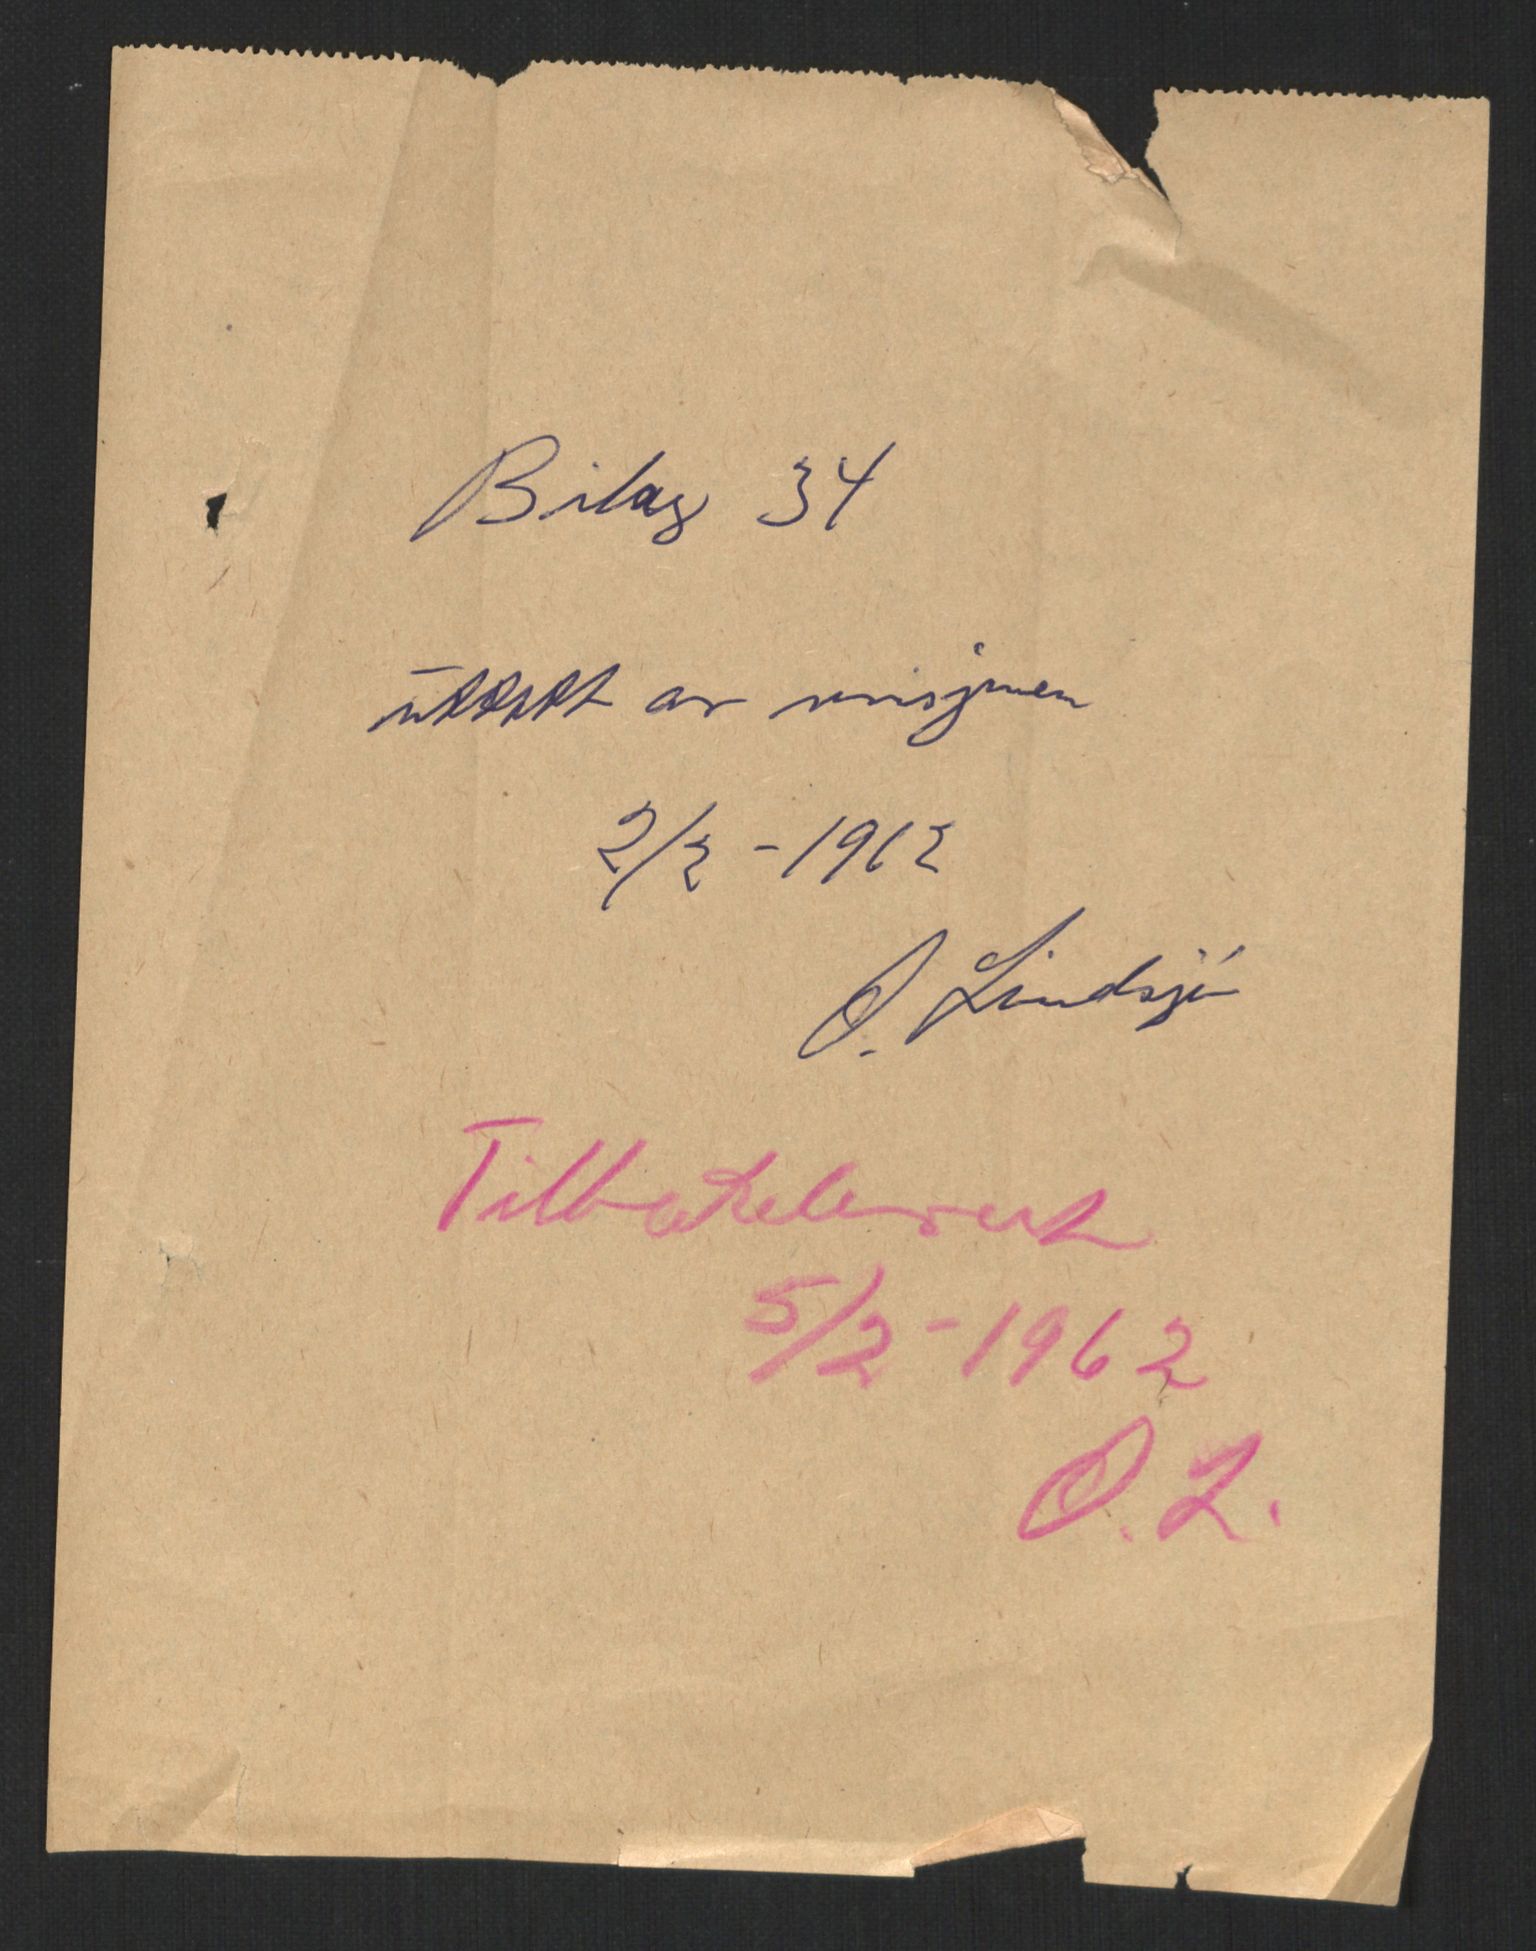 Bilag 34
uttatt av revisjonen
2/2 - 1962
O. Lindsjø
Tilbakelevert
5/2 - 1962
O. L.